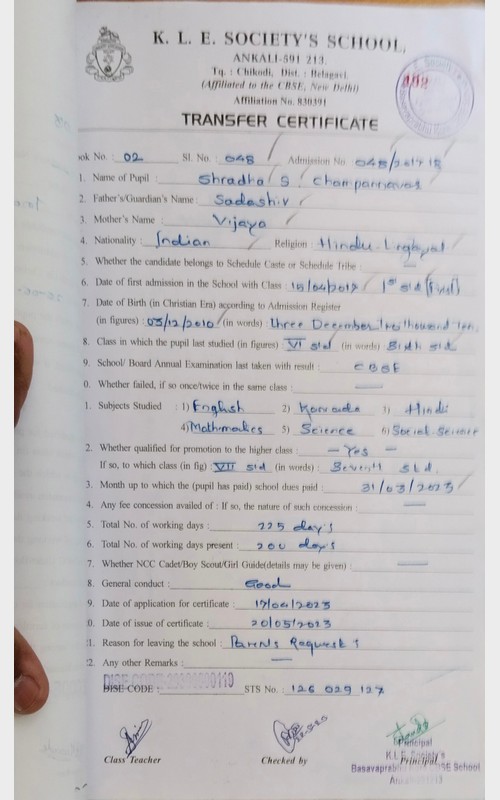 K. L. E. SOCIETY'S SCHOOL,
ANKALI-591 213.
Tq. : Chikodi, Dist. : Belagavi.
(Affiliated to the CBSE, New Delhi)
Affiliation No. 830391
TRANSFER CERTIFICATE
ok No. : 02 Sl. No. : 048 Admission No. 048/2017 18
1. Name of Pupil : Shradha S. Champannavar
2. Father's/Guardian's Name : Sadashiv
3. Mother's Name : Vijaya
4. Nationality : Indian Religion : Hindu
5. Whether the candidate belongs to Schedule Caste or Schedule Tribe : —
6. Date of first admission in the School with Class : 1st std
7. Date of Birth (in Christian Era) according to Admission Register
(in figures) : 03/12/2010 (in words) Three December Two thousand ten.
8. Class in which the pupil last studied (in figures) VI std (in words) std
9. School/ Board Annual Examination last taken with result : CBSE
0. Whether failed, if so once/twice in the same class : —
1. Subjects Studied : 1) English 2) Kannada 3) Hindi
4) Mathmatics 5) Science 6) Social Science
2. Whether qualified for promotion to the higher class : — Yes —
If so, to which class (in fig) VII std (in words) : std.
3. Month up to which the (pupil has paid) school dues paid : 31/03/2023
4. Any fee concession availed of : If so, the nature of such concession : —
5. Total No. of working days : 225 day's
6. Total No. of working days present : 200 day's
7. Whether NCC Cadet/Boy Scout/Girl Guide(details may be given) : —
8. General conduct : Good
9. Date of application for certificate :
0. Date of issue of certificate : 20/05/2023
1. Reason for leaving the school : Parents
2. Any other Remarks : —
DISE CODE : STS No. : 126 029 127
Class Teacher Checked by Principal
Principal
K.L.E. Society's
School